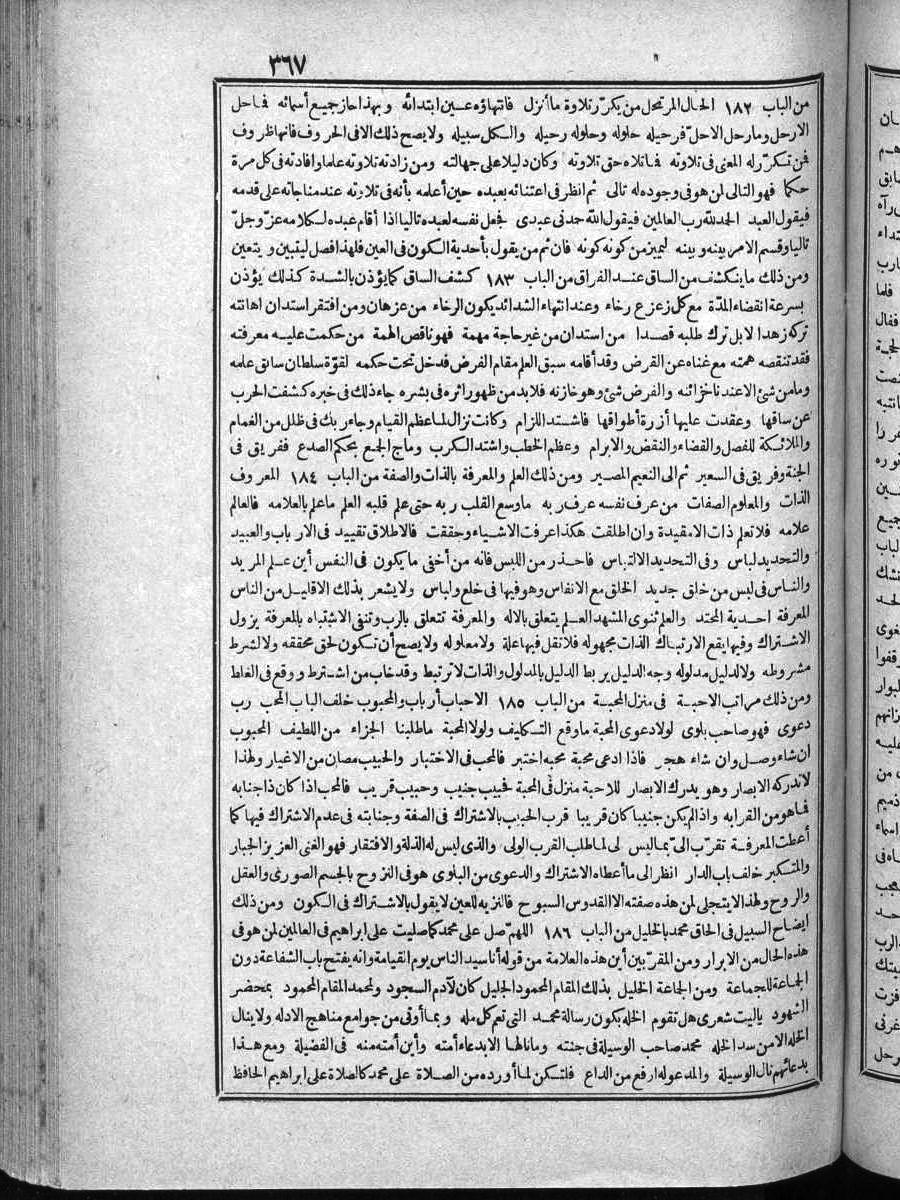 ٣٦٧
من الباب ١٨٢ الحال المرتحل من يكرّر تلاوة ما أنزل فانتهاؤه عين ابتدائه وبهذا حاز جميع أسمائه فما حل
الا رحل وما رحل الا حل ففي رحيله حلوله وحلوله رحيله والكل سبيله ولا يصح ذلك الا في الحروف فانها ظروف
فمن تكرّر له المعنى في تلاوته فما تلاه حق تلاوته وكان دليلا على جهالته ومن زادته تلاوته علما وافادته في كل مرة
حكما فهو التالى لمن هو في وجوده له تالى ثم انظر في اعتنائه بعبده حين أعلمه بأنه في تلاوته عند مناجاته على قدمه
فيقول العبد الحمد لله رب العالمين فيقول الله حمدني عبدى فجعل نفسه لعبده تاليا اذا أقام عبده لكلامه عزّ وجلّ
تاليا وقسم الامر بينه وبينه ليميز من كونه كونه فان ثم من يقول بأحدية الكون في العين فلهذا فصل ليتبين ويتعين
ومن ذلك ما ينكشف من الساق عند الفراق من الباب ١٨٣ كشف الساق كما يؤذن بالشدة كذلك يؤذن
بسرعة انقضاء المدّة مع كل زعزع رخاء وعند انتهاء الشدائد يكون الرخاء من عز هان ومن افتقر استدان اهانته
تركه زهدا لا بل ترك طلبه قصدا من استدان من غير حاجة مهمة فهو ناقص الهمة من حكمت عليه معرفته
فقد تنقصه همته مع غناه عن القرض وقد أقامه سبق العلم مقام الفرض فدخل تحت حكمه لقوّة سلطان سابق علمه
وما من شئ الا عندنا خزائنه والفرض شئ وهو خازنه فلا بد من ظهور اثره في بشره جاء ذلك في خبره كشفت الحرب
عن ساقها وعقدت عليها أزرة أطواقها فاشتد اللزام وكانت نزال لما عظم القيام وجاء ربك في ظلل من الغمام
والملائكة للفصل والقضاء والنقض والابرام وعظم الخطب واشتد الكرب وماج الجمع بحكم الصدع ففريق في
الجنة وفريق في السعير ثم الى النعيم المصير ومن ذلك العلم والمعرفة بالذات والصفة من الباب ١٨٤ المعروف
الذات والمعلوم الصفات من عرف نفسه عرف ربه ما وسع القلب ربه حتى علم قلبه العلم ما علم بالعلامه فالعالم
علامه فلا تعلم ذات الا مقيدة وان اطلقت هكذا عرفت الاشياء وحققت فالاطلاق تقييد في الارباب والعبيد
والتحديد لباس وفي التحديد الالتباس فاحذر من اللبس فانه من أخفى ما يكون في النفس أين علم المريد
والناس في لبس من خلق جديد الخلق مع الانفاس وهو فيها في خلع ولباس ولا يشعر بذلك الا قليل من الناس
المعرفة احدية المحتد والعلم ثنوى المشهد العلم يتعلق بالاله والمعرفة تتعلق بالرب وتنفى الاشتباه بالمعرفة يزول
الاشتراك وفيها يقع الارتباك الذات مجهوله فلا نقل فيها علة ولا معلوله ولا يصح أن تكون لحق محققه ولا لشرط
مشروطه ولا لدليل مدلوله وجه الدليل يربط الدليل بالمدلول والذات لا ترتبط وقد خاب من اشترط ووقع في الغلط
ومن ذلك مراتب الاحبة في منزل المحبة من الباب ١٨٥ الاحباب أرباب والمحبوب خلف الباب المحب رب
دعوى فهو صاحب بلوى لولا دعوى المحبة ما وقع التكليف ولولا المحبة ما طلبنا الجزاء من اللطيف المحبوب
ان شاء وصل وان شاء هجر فاذا ادعى محبة محبه اختبر فالمحب في الاختبار والحبيب مصان من الاغيار ولهذا
لا تدركه الابصار وهو يدرك الابصار للاحبة منزل في المحبة فحبيب جنيب وحبيب قريب فالمحب اذا كان ذا جنابه
فما هو من القرابه واذا لم يكن جنيبا كان قريبا قرب الحبيب بالاشتراك في الصفة وجنابته في عدم الاشتراك فيها كما
أعطت المعرفة تقرّب الىّ بما ليس لى لما طلب القرب الولى والذى ليس له الذلة والافتقار فهو الغنى العزيز الجبار
والمتكبر خلف باب الدار انظر الى ما أعطاه الاشتراك والدعوى من البلوى هو في النزوح بالجسم الصورى والعقل
والروح ولهذا لا يتجلى لمن هذه صفته الا القدوس السبوح فالنزيه للعين لا يقول بالاشتراك في الكون ومن ذلك
ايضاح السبيل في الحاق محمد بالخليل من الباب ١٨٦ اللهمّ صل على محمد كما صليت على ابراهيم في العالمين لمن هو في
هذه الحال من الابرار ومن المقرّبين أين هذه العلامة من قوله أنا سيد الناس يوم القيامة وانه يفتح باب الشفاعة دون
الجماعة للجماعة ومن الجماعة الخليل بذلك المقام المحمود الجليل كان لآدم السجود ولمحمد المقام المحمود بمحضر
الشهود ياليت شعرى هل تقوم الخله بكون رسالة محمد التى تعم كل مله وبما أوتى من جوامع مناهج الادله ولا ينال
الخله الا من سد الخله محمد صاحب الوسيلة في جنته وما نالها الا بدعاء أمته وأين أمته منه في الفضيلة ومع هذا
بدعائهم نال الوسيلة والمدعو له ارفع من الداع فلتكن لما أورده من الصلاة على محمد كالصلاة على ابراهيم الحافظ